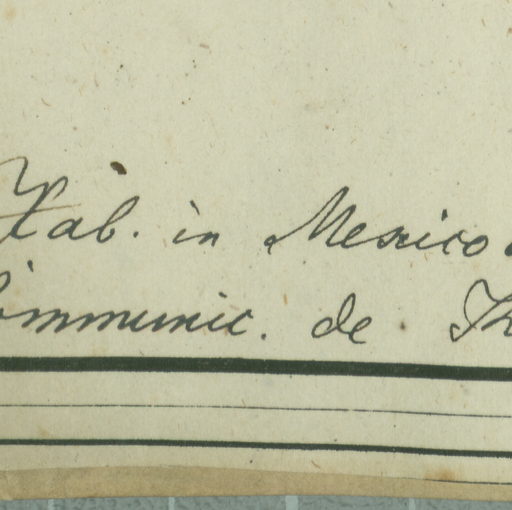 Hab. in Mexico
Communic. de